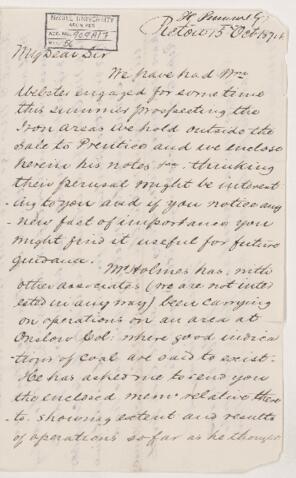 McGILL UNIVERSITY
ARCHIVES
ACC. NO. 909A/7
REF. 56
Pictou 15 Oct 1874
My Dear Sir
We have had Wm
Webster engaged for some time
this summer prospecting the
Iron areas we hold outside the
sale to Prentice and we enclose
herein his notes &c thinking
their perusal might be interest
-ing to you and if you notice any
- new fact of importance you
might find it useful for future
guidance.
Mr Holmes has, with
other associates (we are not inter
ested in any way) been carrying
on operations on an area at
Onslow Col. where good indica
tions of coal are said to exist.
He has asked me to send you
the enclosed mem relative there
to showing extent and results
of operations so far as he thought